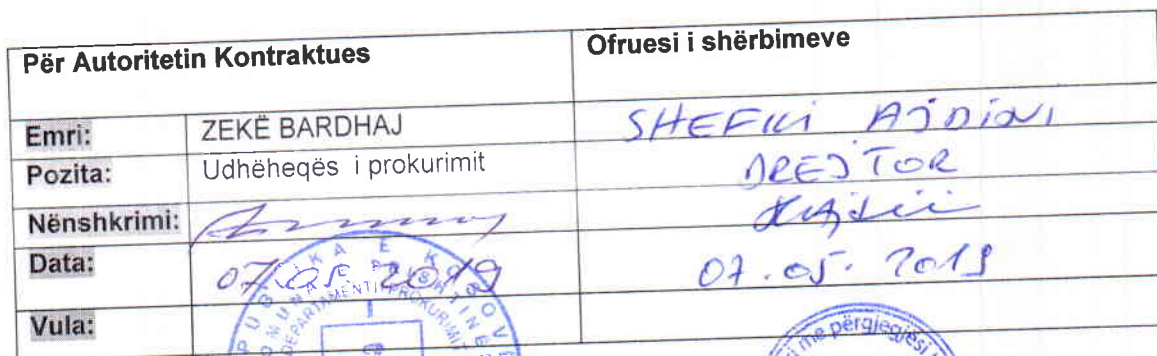 Për Autoritetin Kontraktues Ofruesi i shërbimeve
Emri: ZEKË BARDHAJ SHEFKI AJDINI
Pozita: Udhëheqës i prokurimit DREJTOR
Nënshkrimi:
Data: 07.05.2019 07.05.2019
Vula: